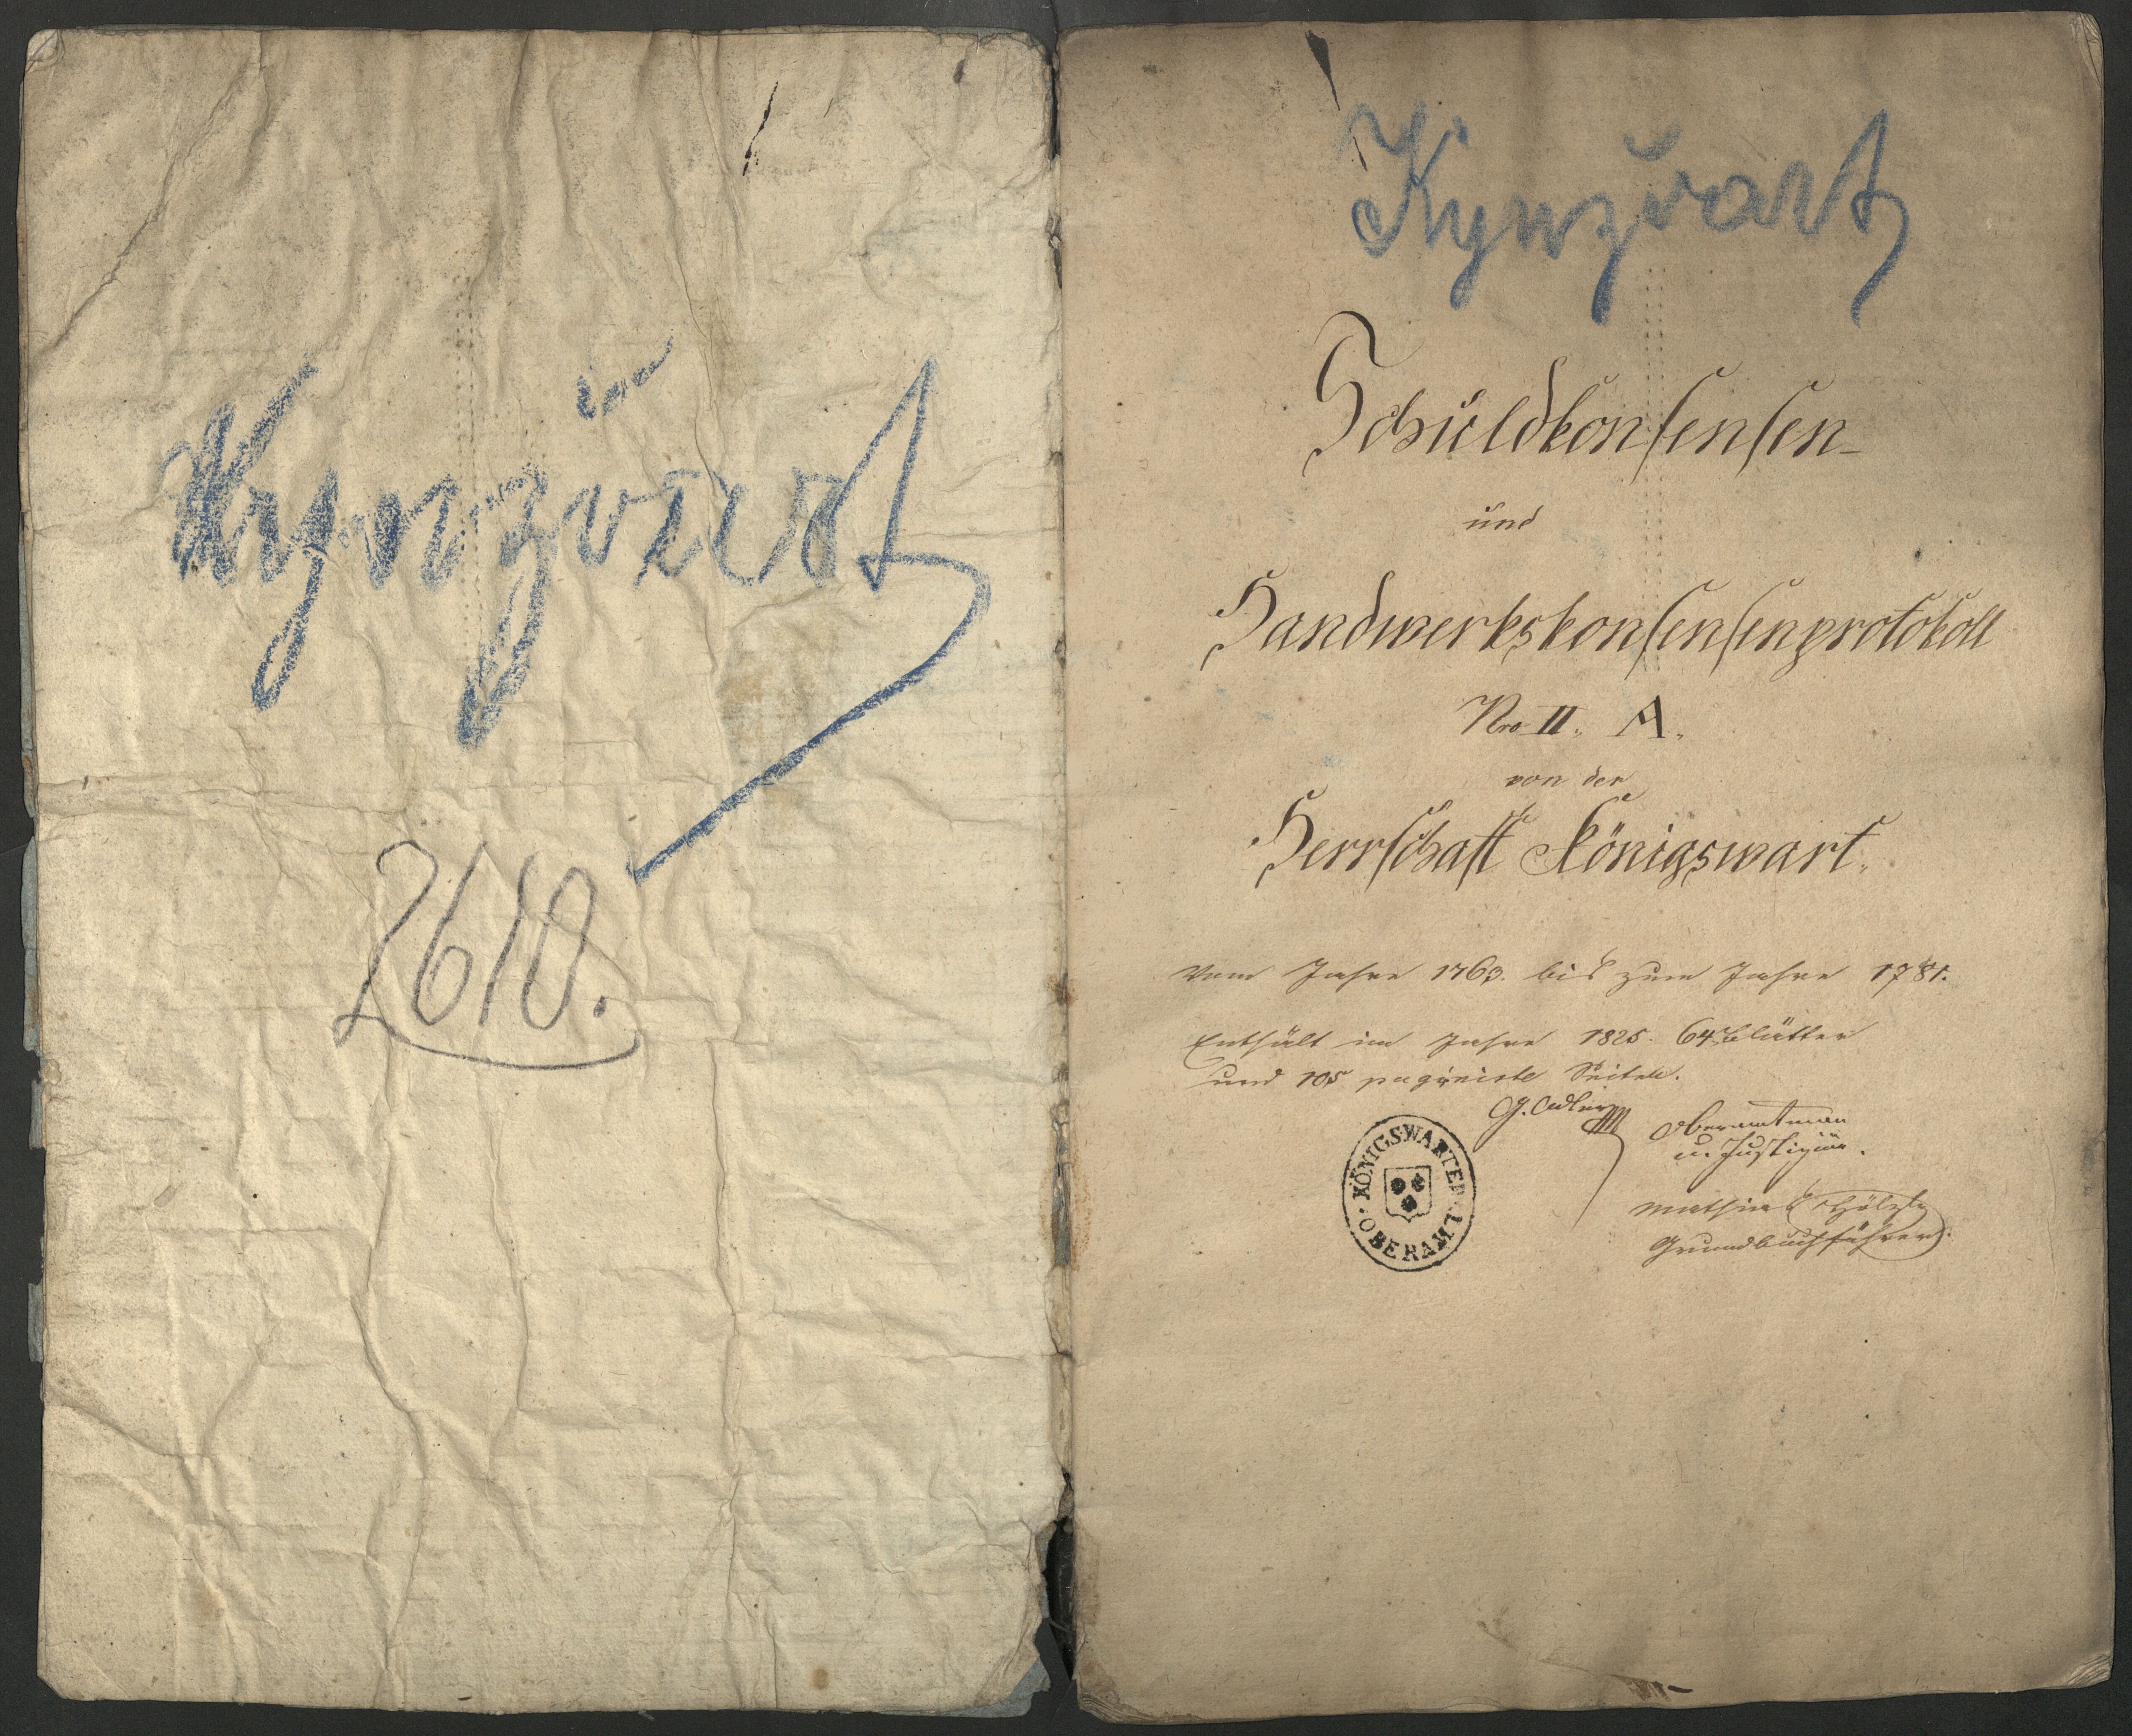 Kynžvart
2610.
Kynžvart
Schuldkonsensen-
und
Handwerkskonsensenprotokoll
Nro II. A.
von der
Herrschaft Königswart.
Vom Jahre 1763. bis zum Jahre 1781.
Enthält im Jahre 1825. 64 Blätter
und 105 paginirte Seiten.
G. Adler
Oberamtmann
u. Justiziär.
KÖNIGSWARTER OBERAMT
Mathias
Grundbuchführer.